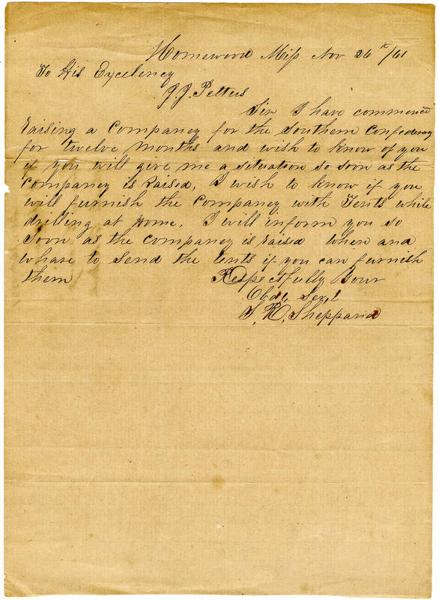 Homewood Miss Nov 26th/61
To His Excelency
J. J. Pettus
Sir I have commenced
raising a Company for the Southern Confederacy
for twelve months and wish to know of you
if you will give me a situation so soon as the
Company is raised. I wish to know if you
will furnish the Company with Tents while
drilling at Home. I will inform you so
soon as the company is raised when and
whare to send the tents if you can furnish
them Respectfully Your
Obdt Servt
Sheppard